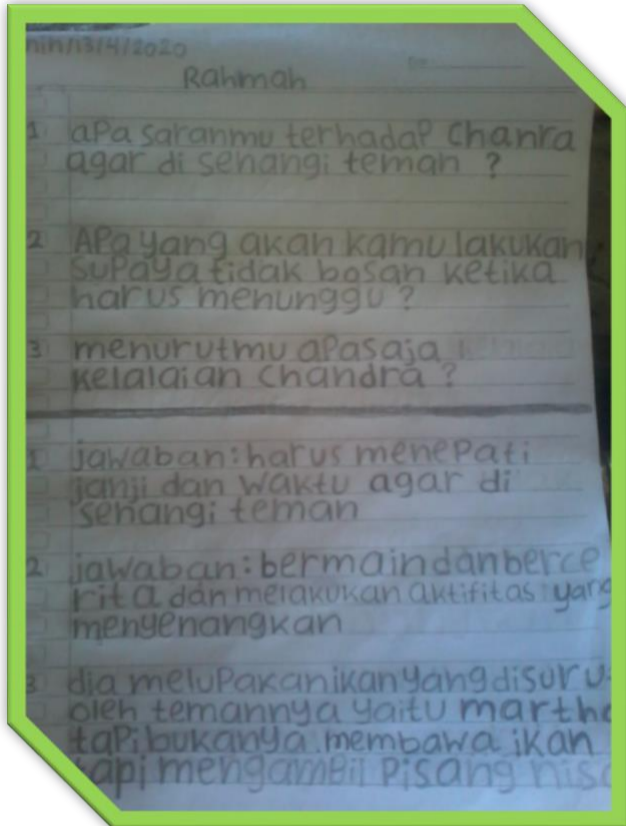 nin/13/4/2020
Rahmah
1 aPa saranmu terhadaP Chanra
agar di senangi teman ?
2 APa yang akan kamu lakukan
suPaya tidak bosan ketika
harus menunggu ?
3 menurutmu aPasaja
kelalaian Chandra ?
1 jawaban : harus menePati
janji dan waktu agar di
senangi teman
2 jawaban : bermaindanberce
rita dan melakukan aktifitas yang
menyenangkan
3 dia meluPakanikanyangdisuru
oleh temannya yaitu martha
taPi bukanya membawa ikan
tapi mengambil Pisang